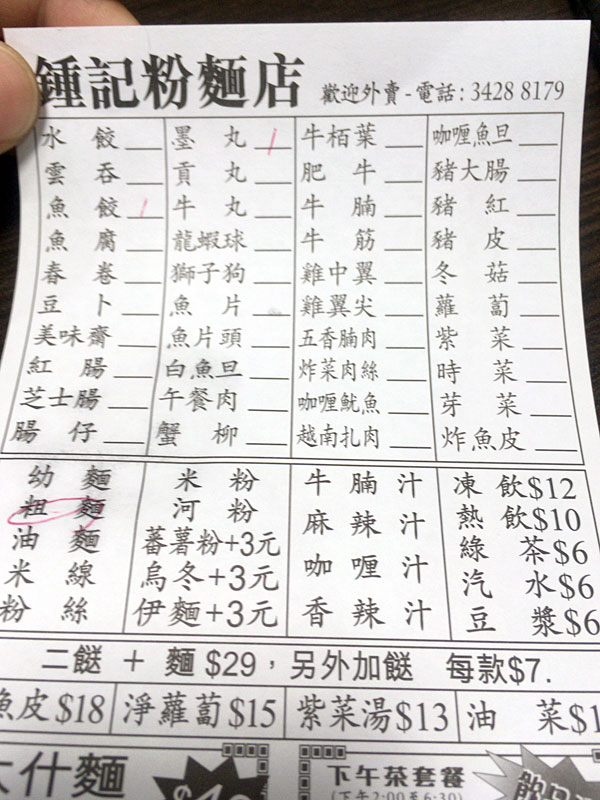 鍾記粉麵店 歡迎外賣 - 電話 : 3428 8179
水餃 墨丸 牛栢葉 咖喱魚旦
雲吞 貢丸 肥牛 豬大腸
魚餃 牛丸 牛腩 豬紅
魚腐 龍蝦球 牛筋 豬皮
春卷 獅子狗 雞中翼 冬菇
豆卜 魚片 雞翼尖 蘿蔔
美味齋 魚片頭 五香腩肉 紫菜
紅腸 白魚旦 炸菜肉絲 時菜
芝士腸 午餐肉 咖喱魷魚 芽菜
腸仔 蟹柳 越南扎肉 炸魚皮
幼麵 米粉 牛腩汁 凍飲$12
粗麵 河粉 麻辣汁 熱飲$10
油麵 蕃薯粉+3元 咖喱汁 綠茶$6
米線 烏冬+3元 香辣汁 汽水$6
粉絲 伊麵+3元 豆漿$6
二餸 + 麵 $29，另外加餸 每款$7.
魚皮$18 淨蘿蔔$15 紫菜湯$13 油菜$1
什麵 下午茶套餐
(下午2:00至6:30)